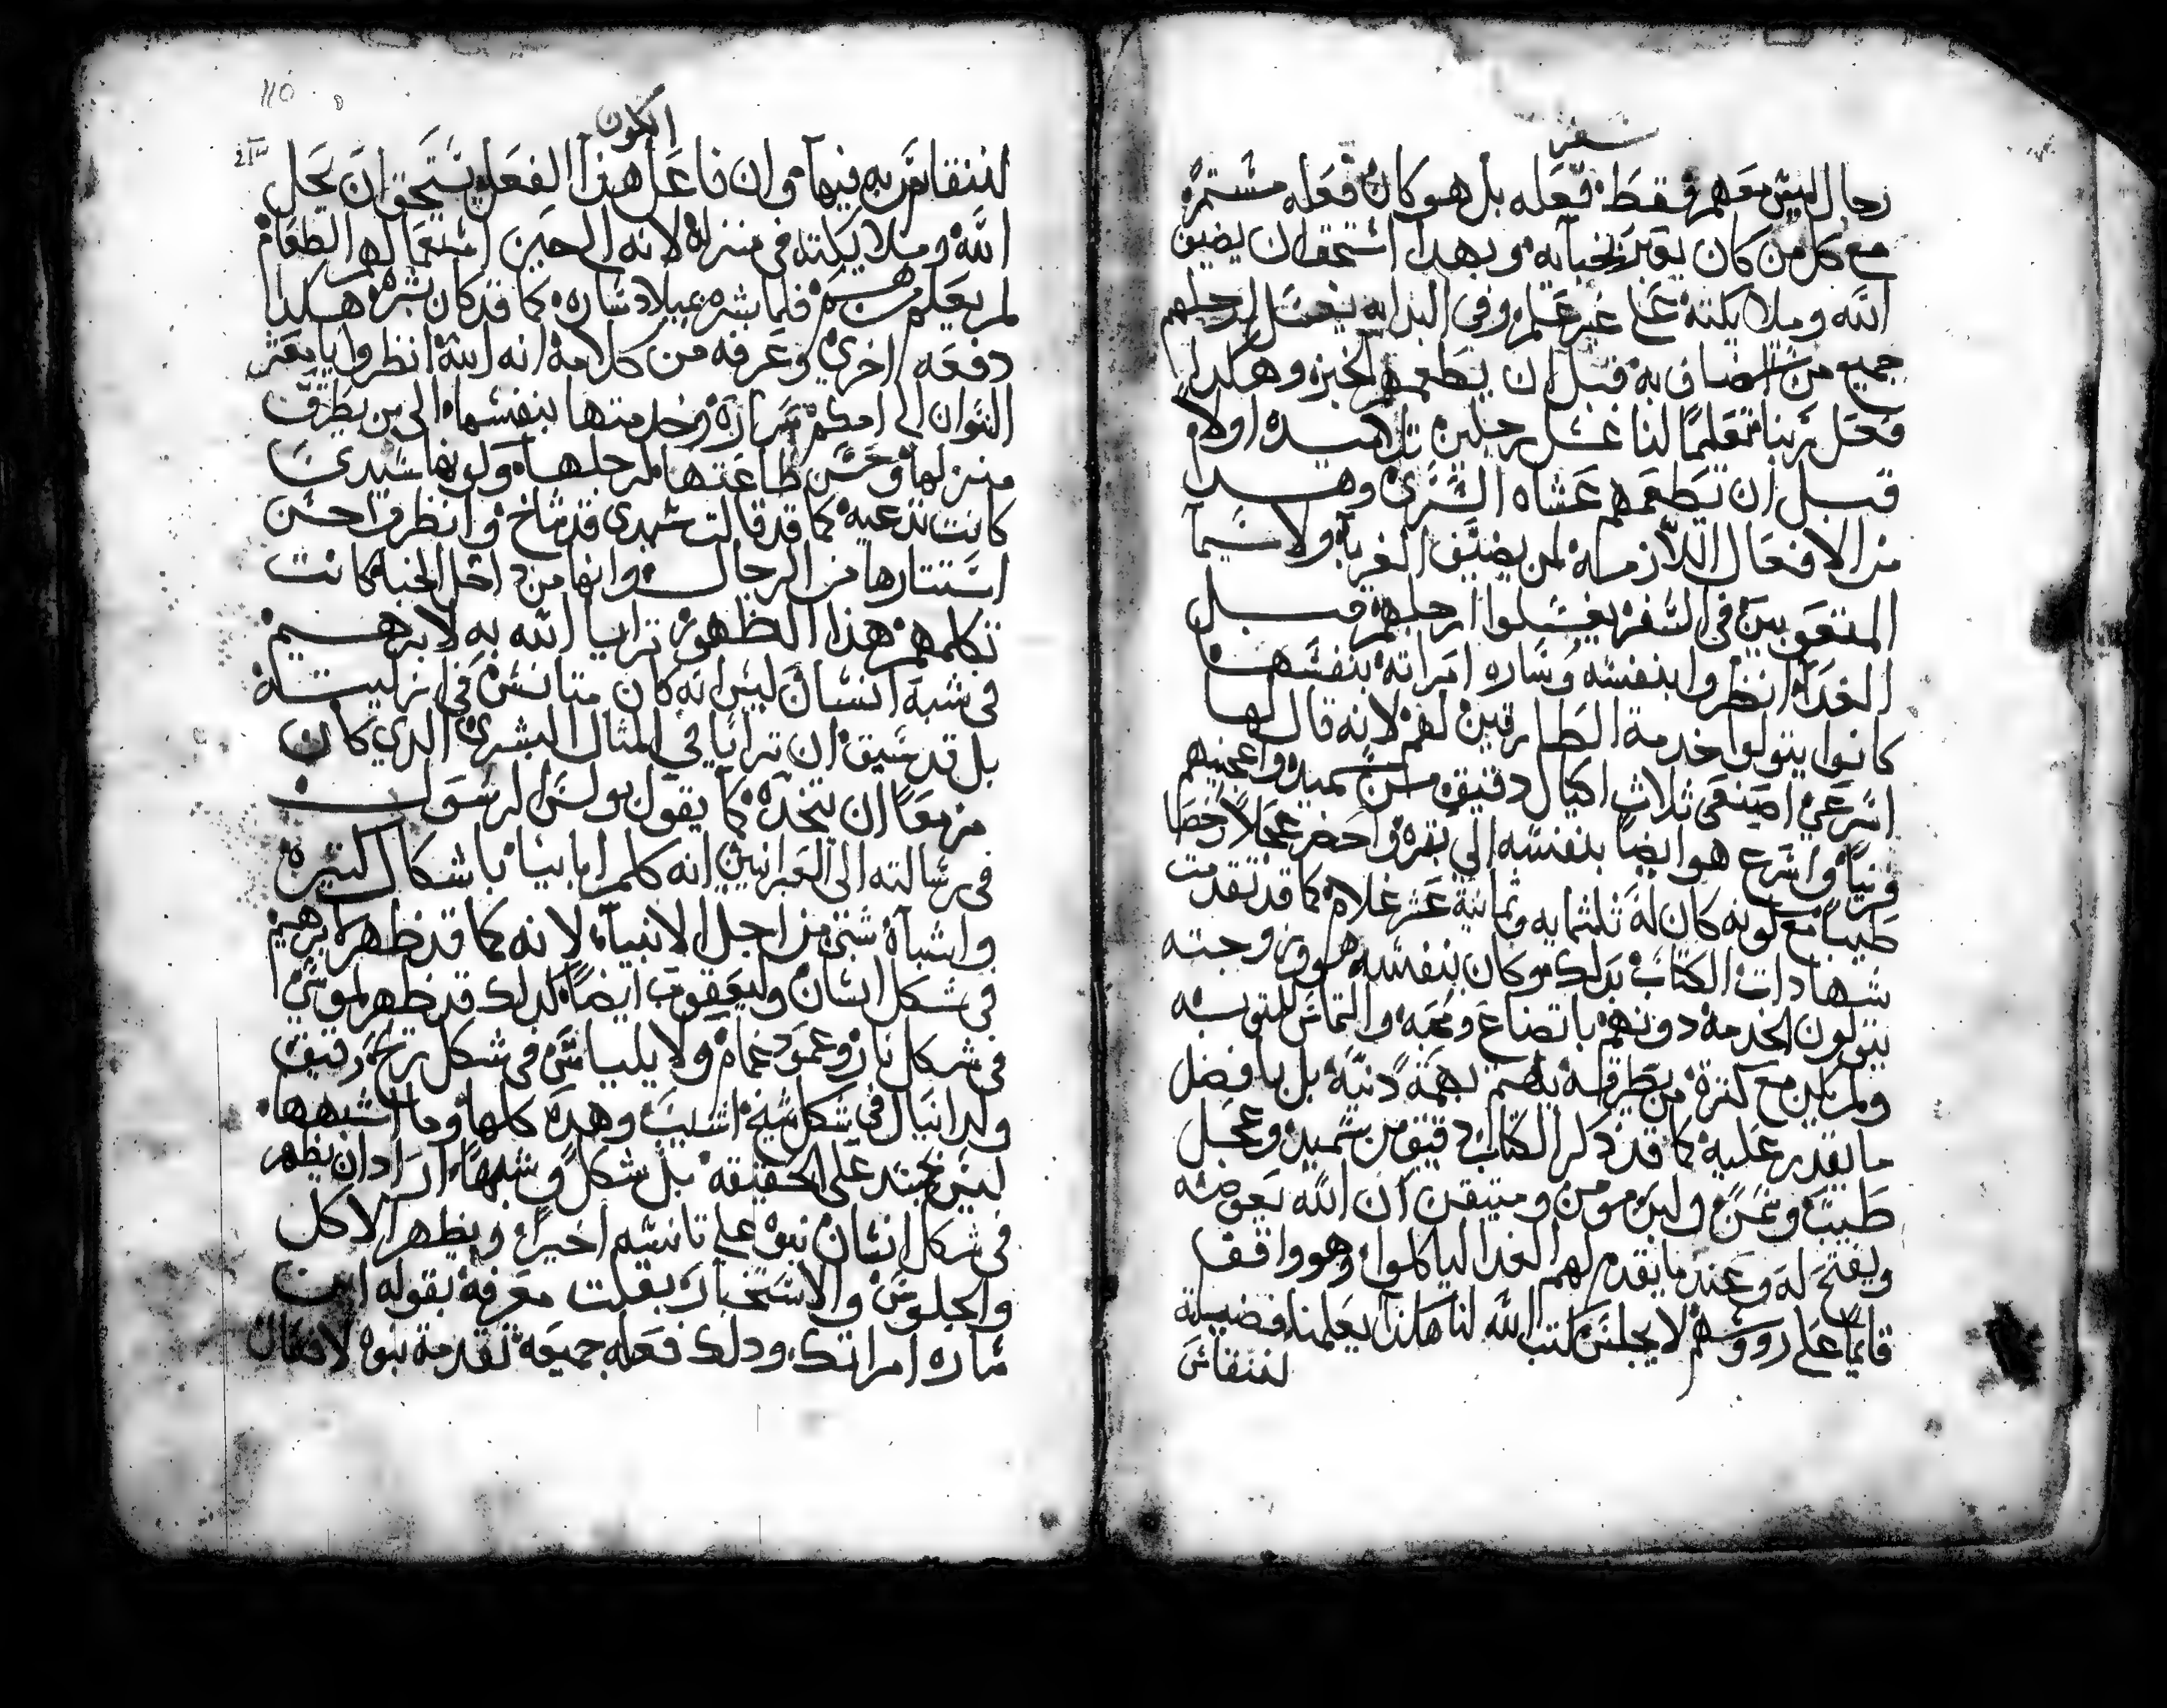 سفر
رجال ليس معهم فقط فعله بل هو كان فعله مستمره
مع كل من كان يقرب لخبايه وبهدا استحق ان يضيف
الله وملايكته علي غير علم وفي البدايه يغسل ارجلهم
جميع من انضاف به قبل ان يطعمهم الخبز وهكدا
فعل ربنا تعليمًا لنا غسل رجلين تلاميده اولاً
قبل ان يطعمهم عشاه السري وهدا
من الافعال اللازمه لمن يضيف الغربا ولا سيما
المتعوبين في السفر يغسلوا ارجلهم قبل
الغدا انظروا بنفسه وساره امراته بنفسها
كانوا يتولوا خدمة الطارقين لهم لانه قال لها
اسرعي اصنعي ثلاث اكيال دقيق من سميد واعجنيهم
فرنيًا واسرع هو ايضا بنفسه الي بقره واحضر عجلاً رخصا
طيبا مع كونه كان له ثلثمايه وثمانية عشر غلام كما قد تقدمت
شهادات الكتاب بدلك وكان بنفسه هو وزوجته
يتولون الخدمه دونهم باتضاع ومحبه والتماس للتوبه
ولم يكن مع كترة من يطرقه يهتم بهمة دنية بل بافضل
ما يقدر عليه كما قد دكر الكتاب دقيق من سميد وعجل
طيب وسمن ولبن مومن ومتيقن ان الله يعوضه
ويفتح له وعند ما يقدم لهم الغدا لياكلوا وهو واقف
قايمًا علي رووسهم لا يجلس كتب الله لنا هكدا يعلمنا فضيلة
لنتنافس
الكون
لنتنافس به فيها وان فاعل هدا الفعل يستحق ان يحل
الله وملايكته في منزله لانه الي حين استعمالهم الطعام
لم يعلم من هم فلما بشره بميلاد ساره كما قد كان بشره هكدا
دفعه اخري وعرفه من كلامه انه الله انظروا يا معشر
النسوان الي امكم ساره وخدمتها بنفسها الي من يطرق
منزلها وحسن طاعتها لرجلها ولونها سيدي
كانت تدعيه كما قد قالت سيدي قد شاخ وانظروا حسن
استتارها من الرجال وانها من داخل الخبا كانت
تكلمهم هدا الظهور ترايا الله به لابرهيم
في شبه انسان ليس انه كان متانس في ازليته
بل قد سبق ان ترايا في المثال البشري الدي كان
مزمعًا ان يتخده كما يقول بولس الرسول
في رسالته الي العبرانيين انه كلم ابابينا باشكال كتيره
واشباه شتي من اجل الانبيا لانه كما قد ظهر لابرهيم
في شكل انسان وليعقوب ايضًا كدلك قد ظهر لموسي
في شكل نار وعمود غمام ولايلياس في شكل ريح رقيق
ولدانيال في شكل شيخ اشيب وهده كلها وما اشبهها
ليس تجسد علي الحقيقه بل شكل وشبهًا اراد ان يظهر
في شكل انسان نبوه علي تانسه اخيرًا ويظهر الاكل
والجلوس والاستخبار بقلت معرفة بقوله اين
ساره امراتك ودلك فعله جميعه تقدمة نبوه لافعال